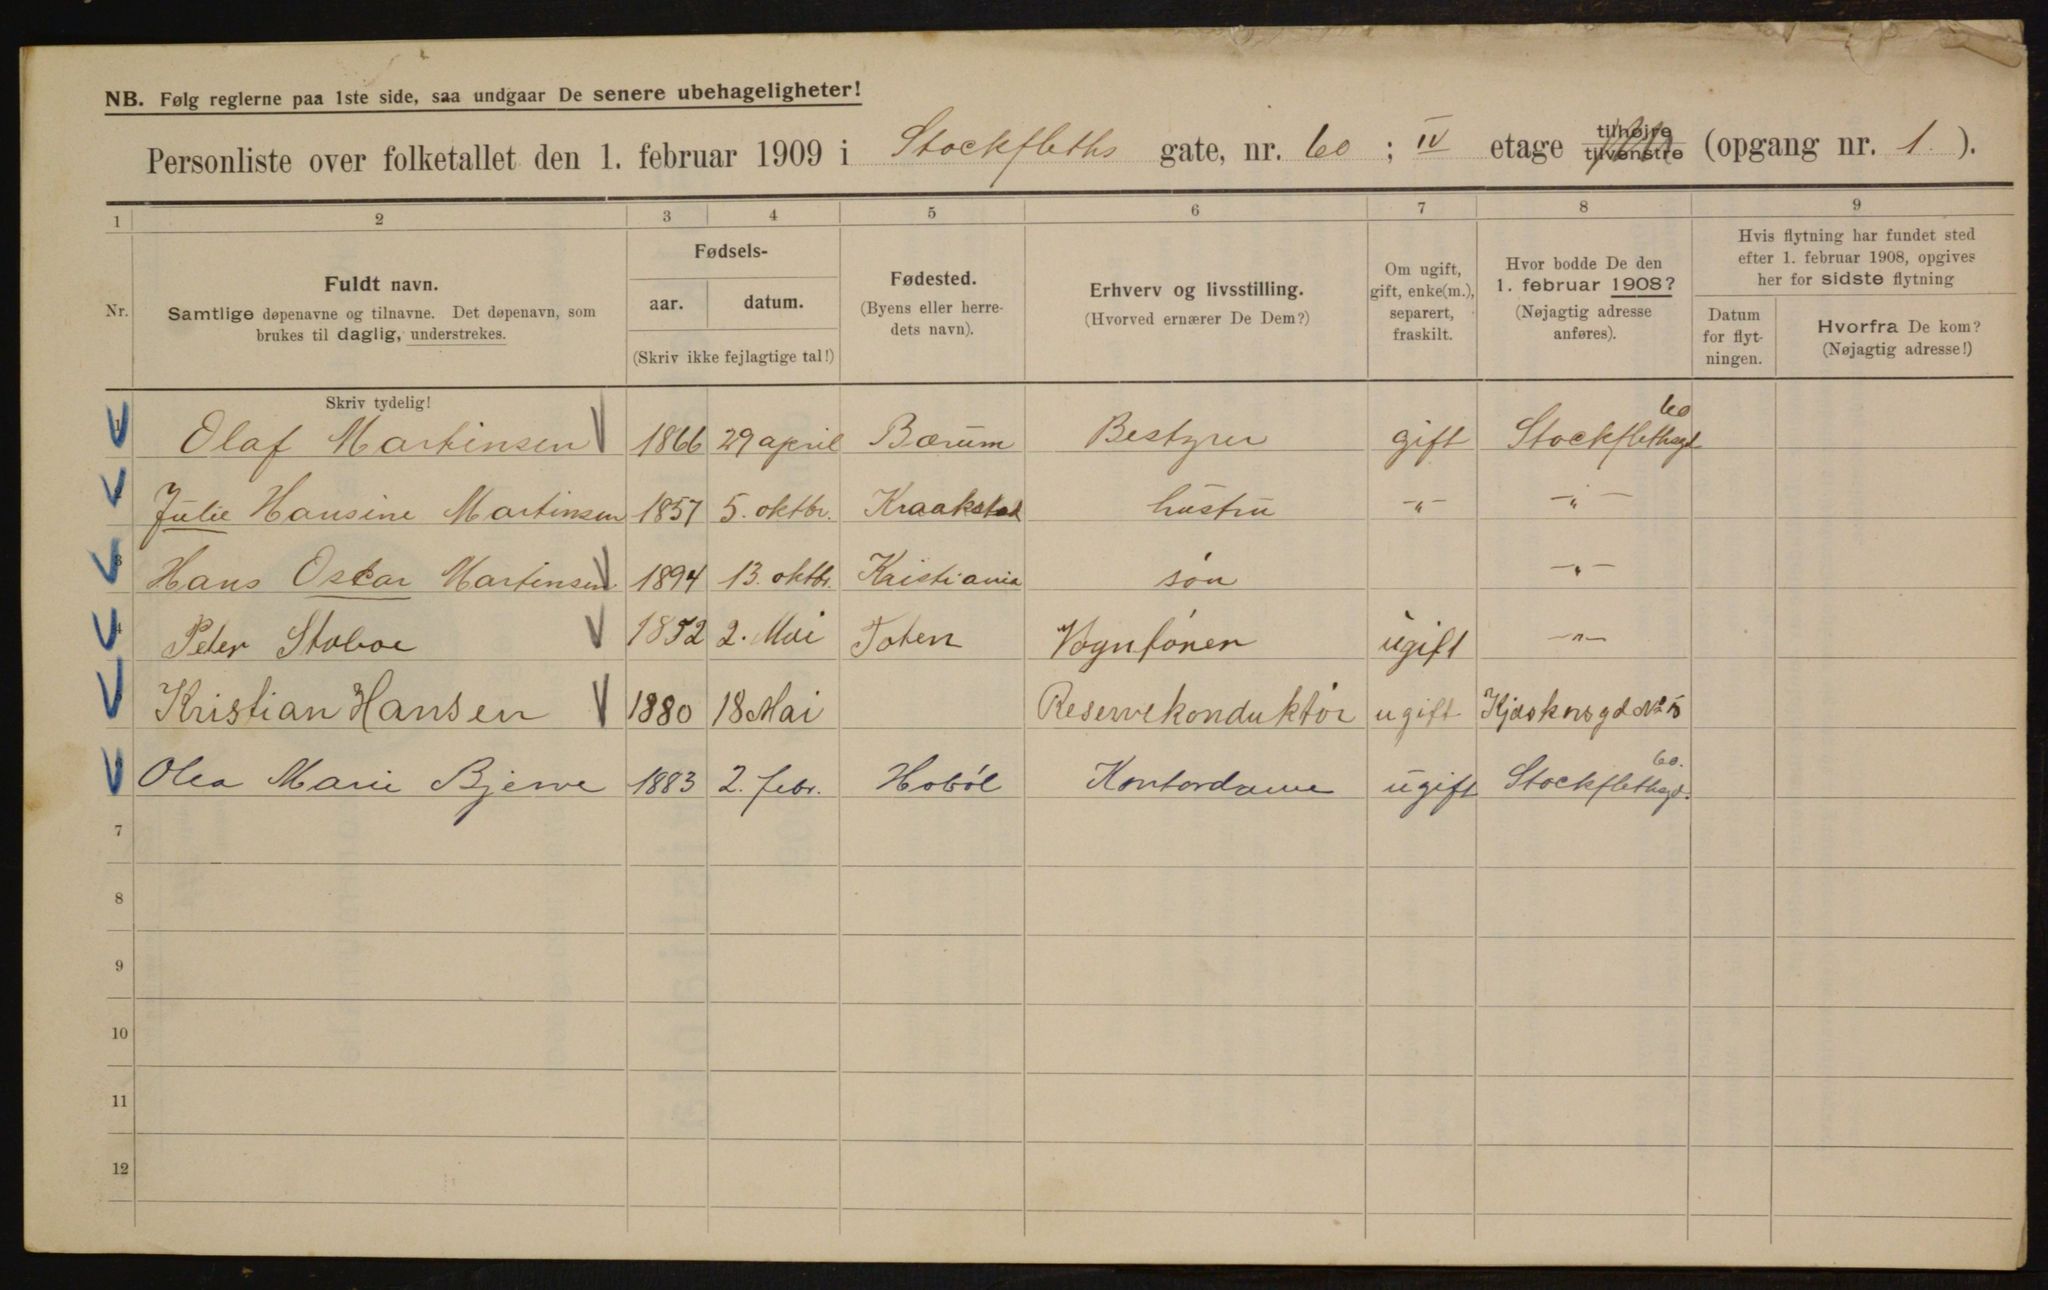 NB. Følg reglerne paa 1ste side, saa undgaar De senere ubehageligheter!
Personliste over folketallet den 1. februar 1909 i Stockfleths gate, nr. 60 ; IV etage tilhøire tilvenstre (opgang nr. 1 ).
1 2 3 4 5 6 7 8 9
Nr. Fuldt navn. Samtlige døpenavne og tilnavne. Det døpenavn, som brukes til daglig, understrekes. Fødsels- aar. datum. (Skriv ikke fejlagtige tal!) Fødested. (Byens eller herredets navn). Erhverv og livsstilling. (Hvorved ernærer De Dem?) Om ugift, gift, enke(m.), separert, fraskilt. Hvor bodde De den 1. februar 1908? (Nøjagtig adresse anføres). Hvis flytning har fundet sted efter 1. februar 1908, opgives her for sidste flytning Datum for flytningen. Hvorfra De kom? (Nøjagtig adresse!)
Skriv tydelig!
1 Olaf Martinsen 1866 29 april Bærum Bestyrer gift Stockflethsgd 60
Julie Hansine Martinsen 1857 5. oktbr. Kraakstad hustru -"- -"-
3 Hans Oscar Martinsen 1894 13. oktbr. Kristiania søn -"-
4 Peter Stabæ 1852 2. Mai Toten Vognfører ugift -"-
5 Kristian Hansen 1880 18 Mai Reservekonduktør ugift
Olea Marie Bjerve 1883 2. febr. Hobøl Kontordame ugift Stockflethsgd. 60.
7
8
9
10
11
12